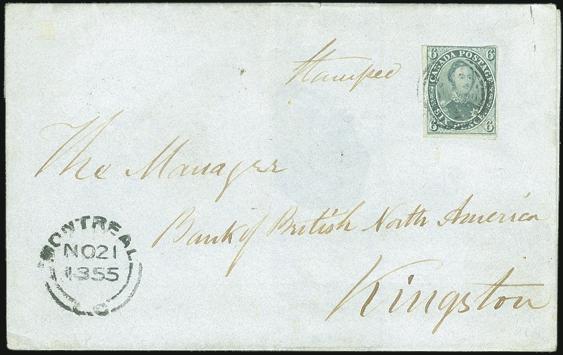 Stamped
6 CANADA POSTAGE 6
6 SIX PENCE 6
The Manager
Bank of British North America
Kingston
MONTREAL
NO 21
1855
L.C